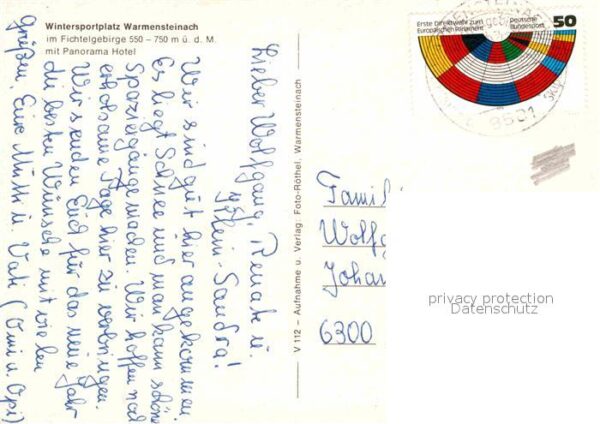 Wintersportplatz Warmensteinach
im Fichtelgebirge 550 – 750 m ü. d. M.
mit Panorama Hotel
Lieber Wolfgang, Renate u.
klein-Sandra!
Wir sind gut hier angekommen.
Es liegt Schnee und man kann schöne
Spaziergänge machen. Wir hoffen
erholsame Tage hier zu verbringen.
Wir senden Euch für das neue Jahr
die besten Wünsche mit vielen
Grüßen, Eure Mutti u. Vati (Omi u. Opi)
V 112 – Aufnahme u. Verlag: Foto-Röthel, Warmensteinach
Erste Direktwahl zum
Europäischen Parlament
Deutsche
Bundespost
50
8581
Famil
Wolfg
Johan
6300
privacy protection
Datenschutz